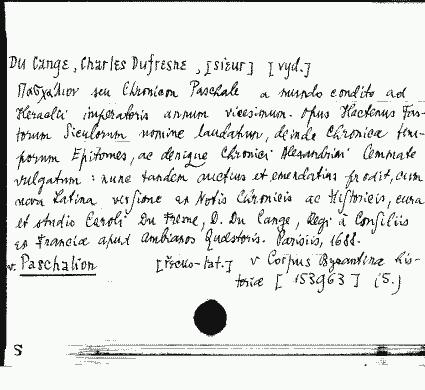 Du Cange, Charles Dufresne, [sieur] [vyd.]
Πασχάλιον seu Chronicon Paschale a mundo condito ad
Heraclii imperatoris annum vicesimum. Opus Hactenus Fas-
torum Siculorum nomine laudatum, deinde Chronicae tem-
porum Epitomes, ac denique Chronici Alexandrini lemmate
vulgatum: nunc tandem auctius et emendatius prodit, cum
nova Latina versione et Notis Chronicis ac Historicis, cura
et studio Caroli Du Fresne, D. Du Cange, Regi à Consiliis
et Franciae apud Ambianos Quaestoris. Parisiis, 1688.
v. Paschalion [řecko-lat.] v Corpus Byzantinae his-
toriae [153963] (5.)
S